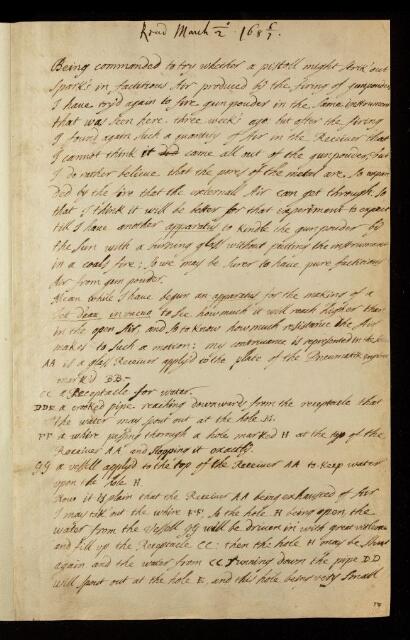 Read March 2. 168 6/7.
Being commanded to try whether a pistoll might strik out
Spark's in factitious Air produced by the firing of gunpowder
I have try'd again to fire gunpowder in the same instrument
that was seen here three week's ago but after the firing
I found again such a quantity of Air in the Receiver that
I cannot think it did came all out of the gunpowder, but
I do rather believe that the pores of the metal are so expan
ded by the fire that the externall Air can get through. So
that I think it will be better for that experiment to expect
till I have another apparatus to kindle the gunpowder by
the sun with a burning glass without putting the instrument
in a coals fire: so we may be surer to have pure factitious
Air from gun powder.
Mean while I have begun an apparatus for the making of a
Jet d'eau in vacuo to see how much it will reach higher than
in the open Air, and so to know how much resistance the Air
makes to such a motion: my contrivance is represented in the
AA is a glass Receiver apply'd to the plate of the Pneumatik engine
marked BB
CC a Receptacle for water.
DDE a crooked pipe reaching downwards from the receptacle that
the water may spout out at the hole
FF a whire passing through a hole marked H at the top of the
Receiver AA and stopping it exactly.
GG a vessell applyd to the top of the Receiver AA to keep water
upon the hole H.
Now it is plain that the Receiver AA being exhausted of Air
I may take out the whire FF. So the hole H being open the
water from the vessell GG will be driven in with great violence
and fill up the Receptacle CC: then the hole H may be shut
again and the water from CC running down the pipe DD
will spout out at the hole E, and this hole being very small